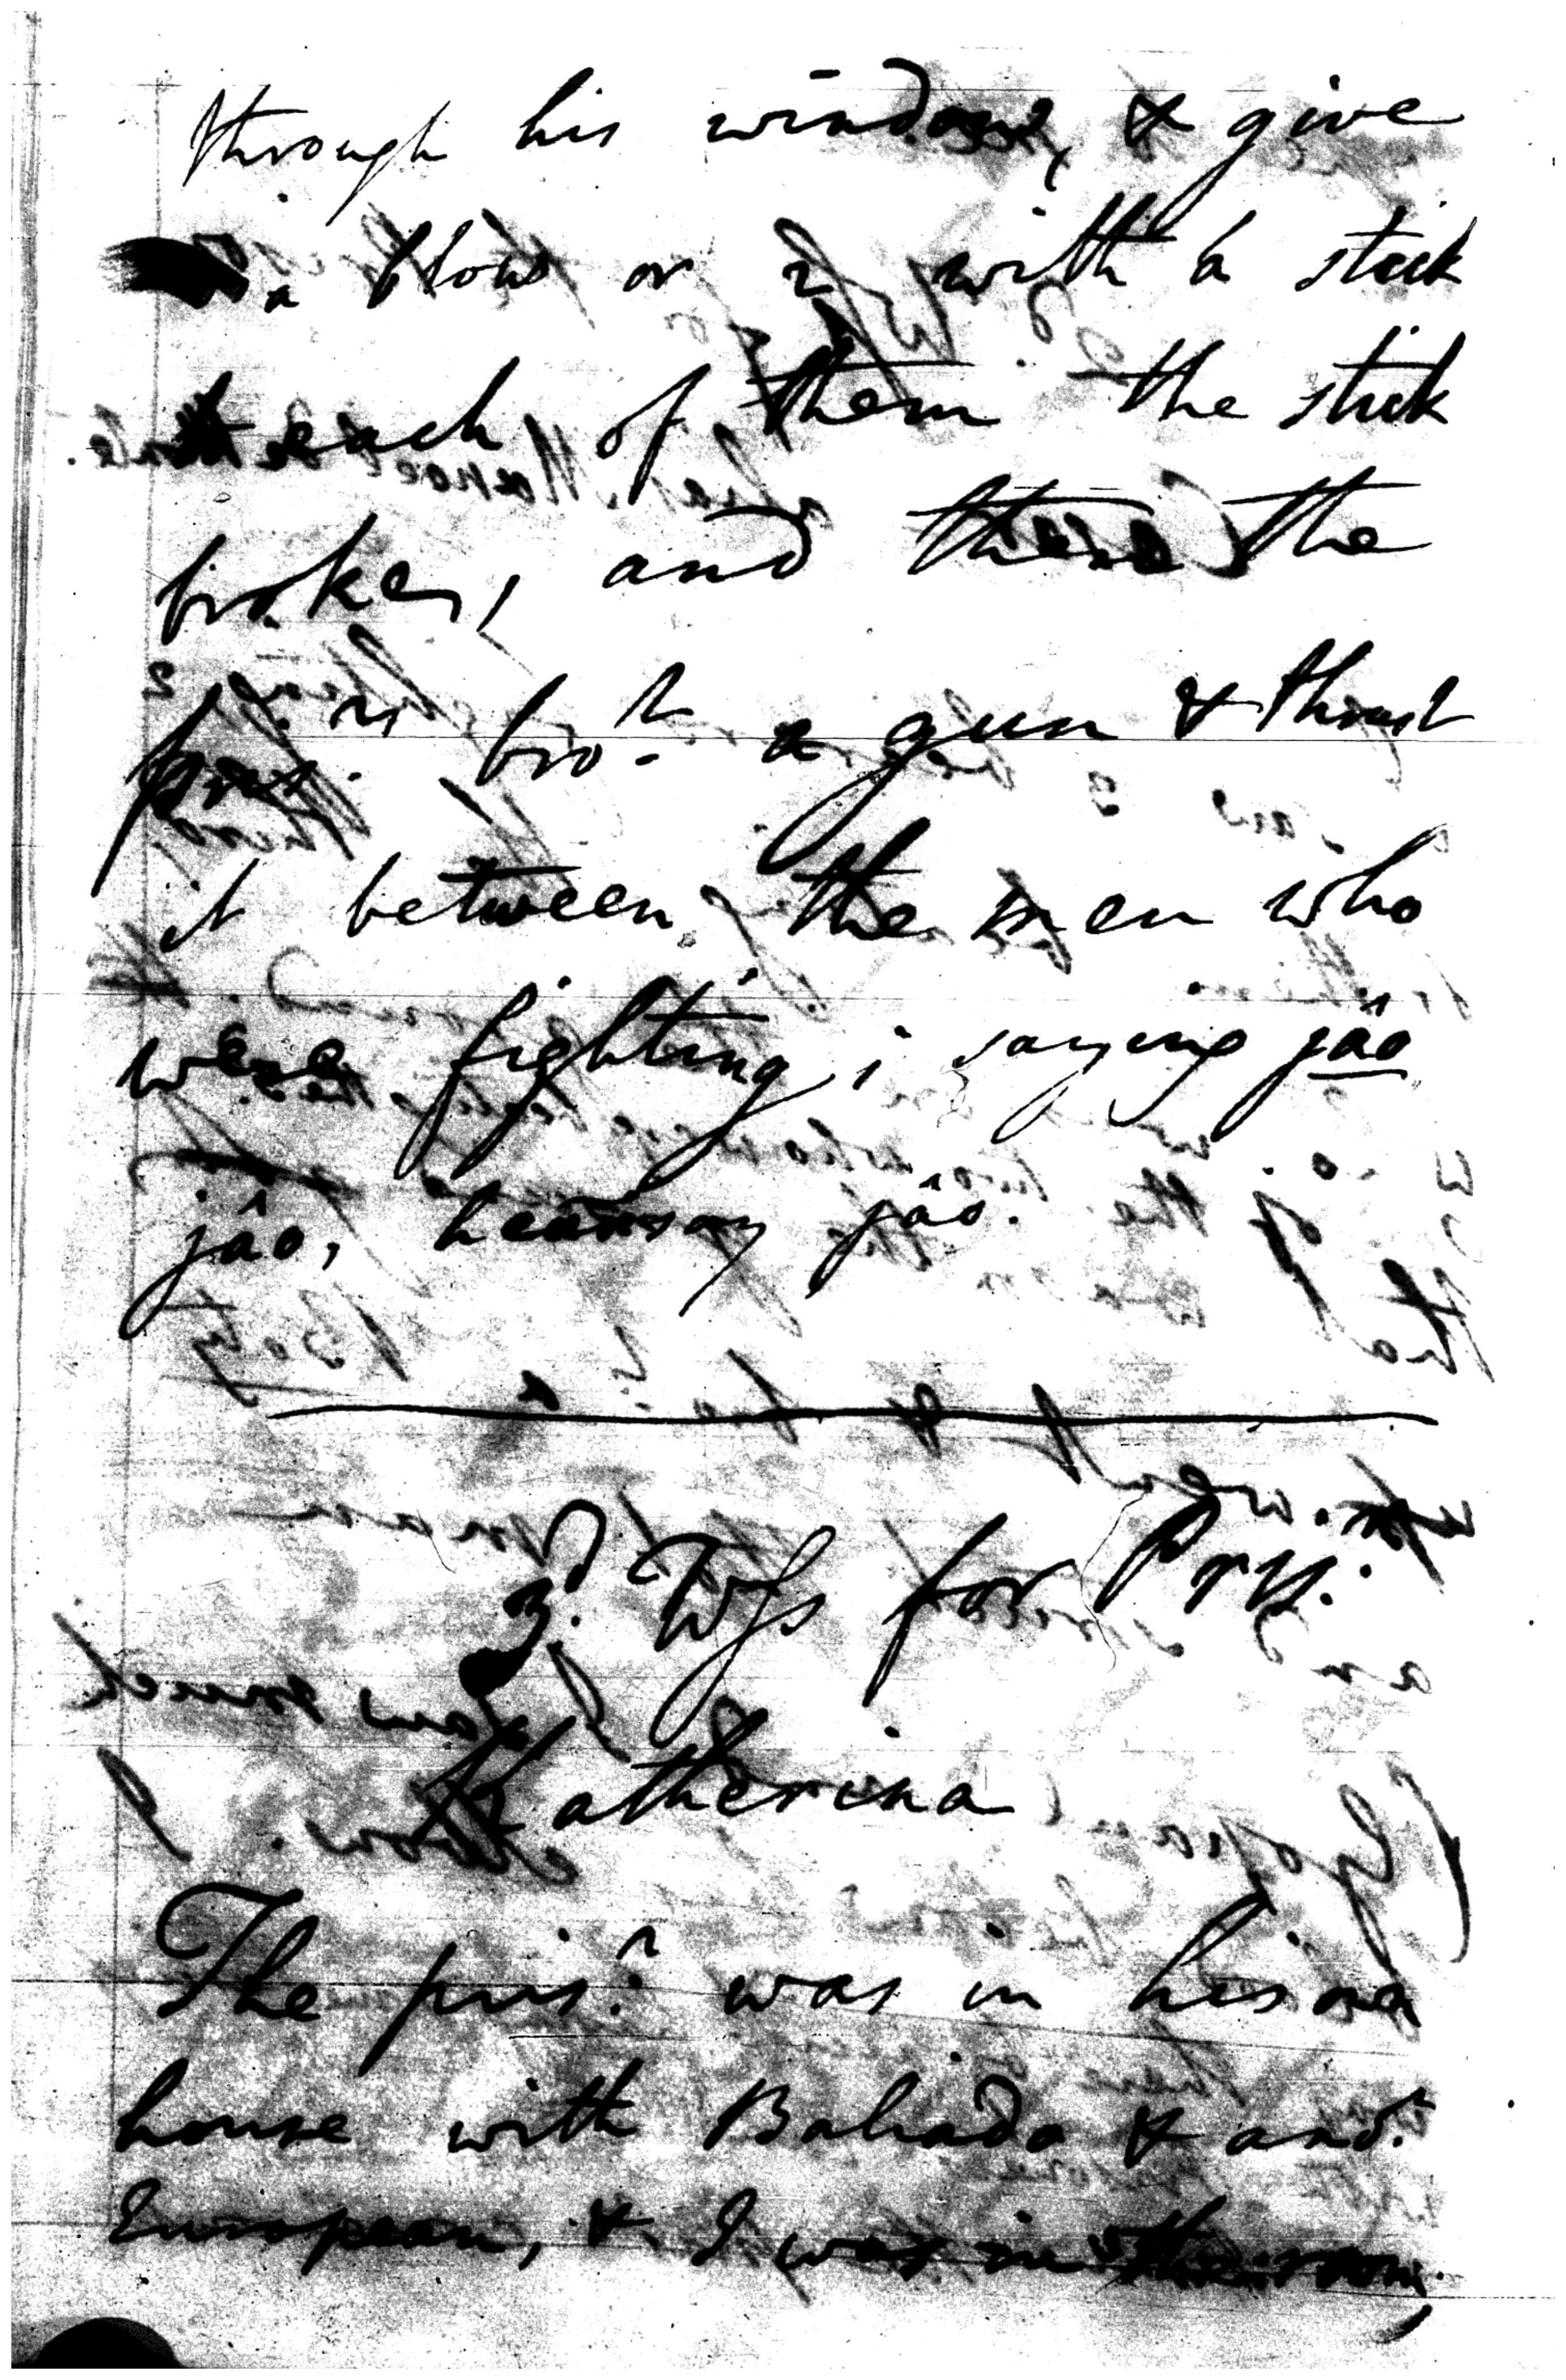 through his window, & give
a blow or 2 with a stick
to each of them the stick
broken, and then the
pris.r bro.t a gun & thrust
it between the men who
were fighting, saying jâo
jâo, jâo.
3.d Wſs for Pry.
Katherina
The pris.r was in his own
house with Bahada & and.r
European, & I was in the room,